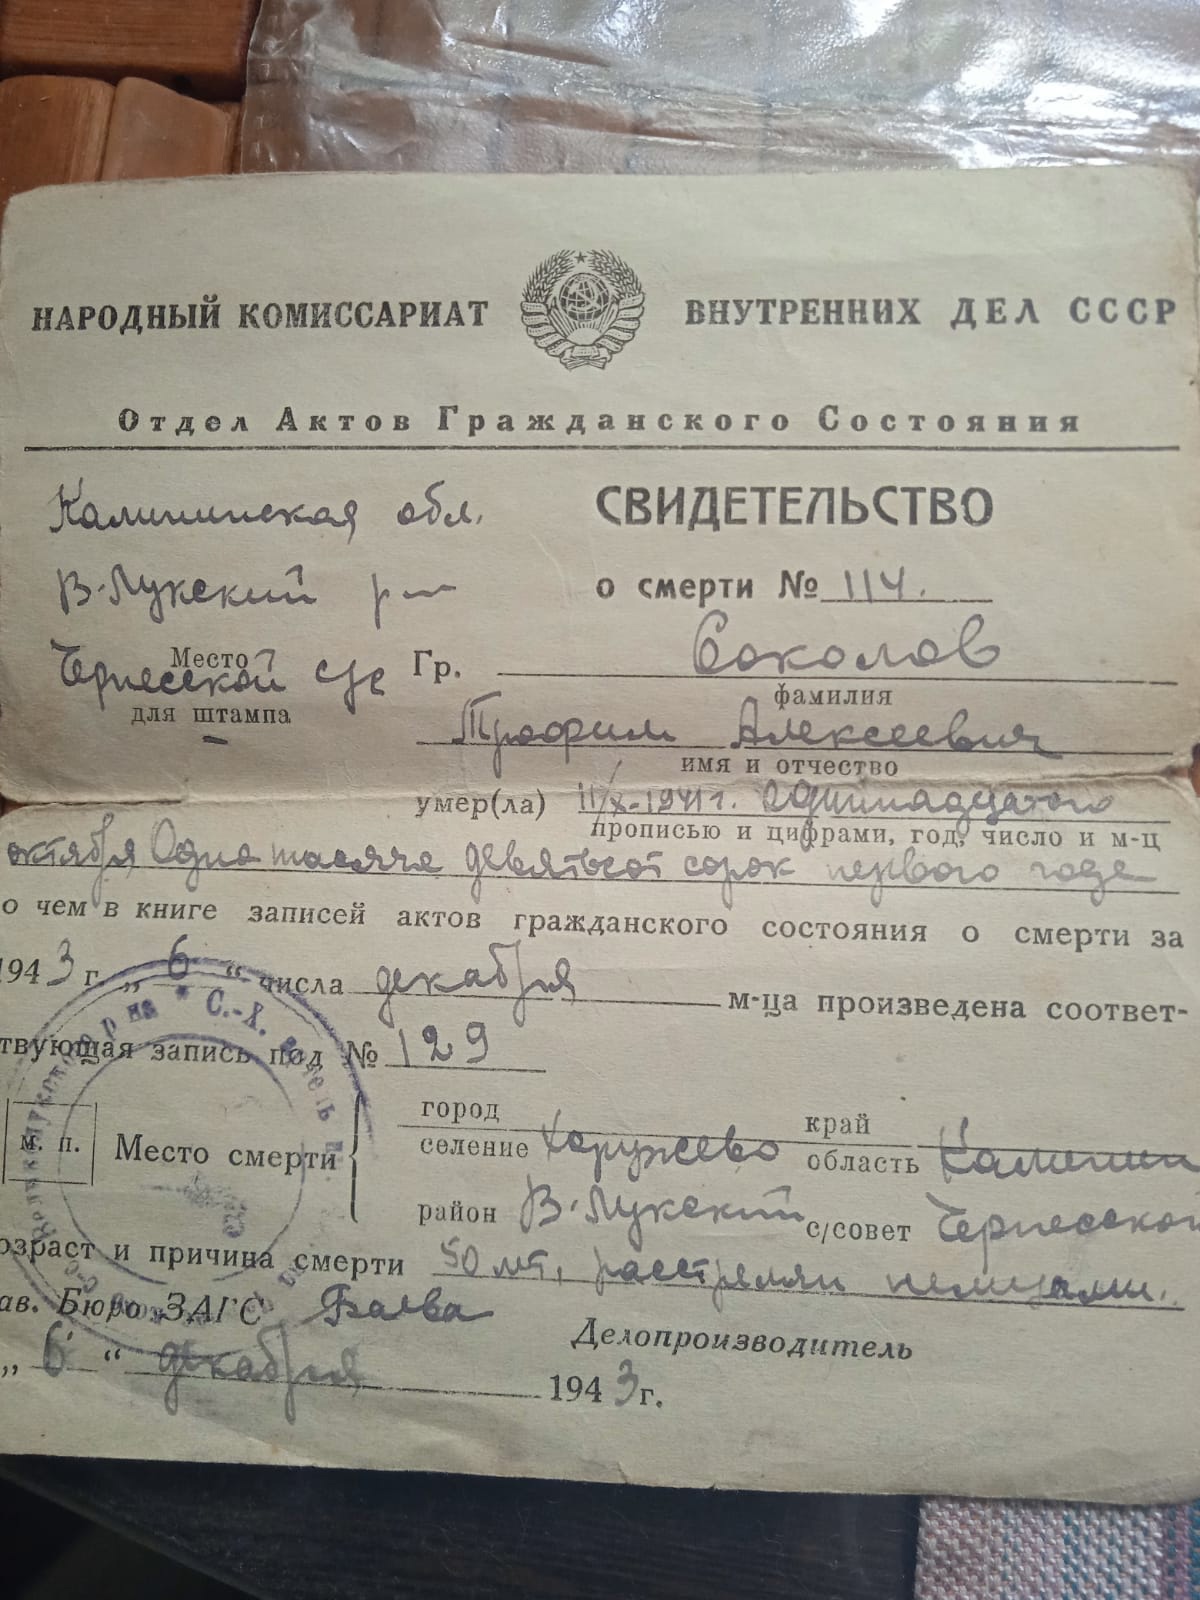 НАРОДНЫЙ КОМИССАРИАТ ВНУТРЕННИХ ДЕЛ СССР
Отдел Актов Гражданского Состояния
Калининская обл.
В-Лукский р-н
Место
для штампа
СВИДЕТЕЛЬСТВО
о смерти № 114.
Гр. Соколов
фамилия
Трофим Алексеевич
имя и отчество
умер(ла) 11/X-1941 г. одиннадцатого
прописью и цифрами, год, число и м-ц
октября Одна тысяча девятьсот сорок первого года
о чем в книге записей актов гражданского состояния о смерти за
1943 г. „6“ числа декабря м-ца произведена соответ-
твующая запись под № 129
м. п.
Место смерти
город
селение Хоружево
край
область Калинин
район В-Лукский с/совет
озраст и причина смерти 50 лет, расстрелян немцами.
ав. Бюро ЗАГС Баева
Делопроизводитель
„6“ декабря 1943 г.